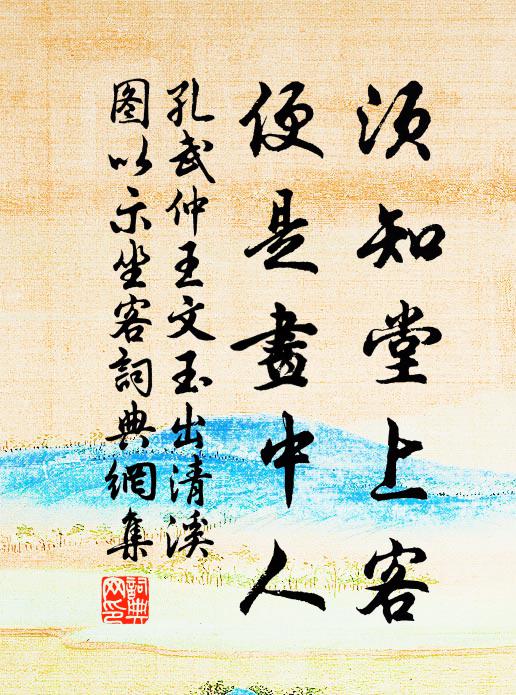 须知堂上客
便是畫中人
孔武仲王文玉出清溪
图以示坐客詞典網集
詞典網印